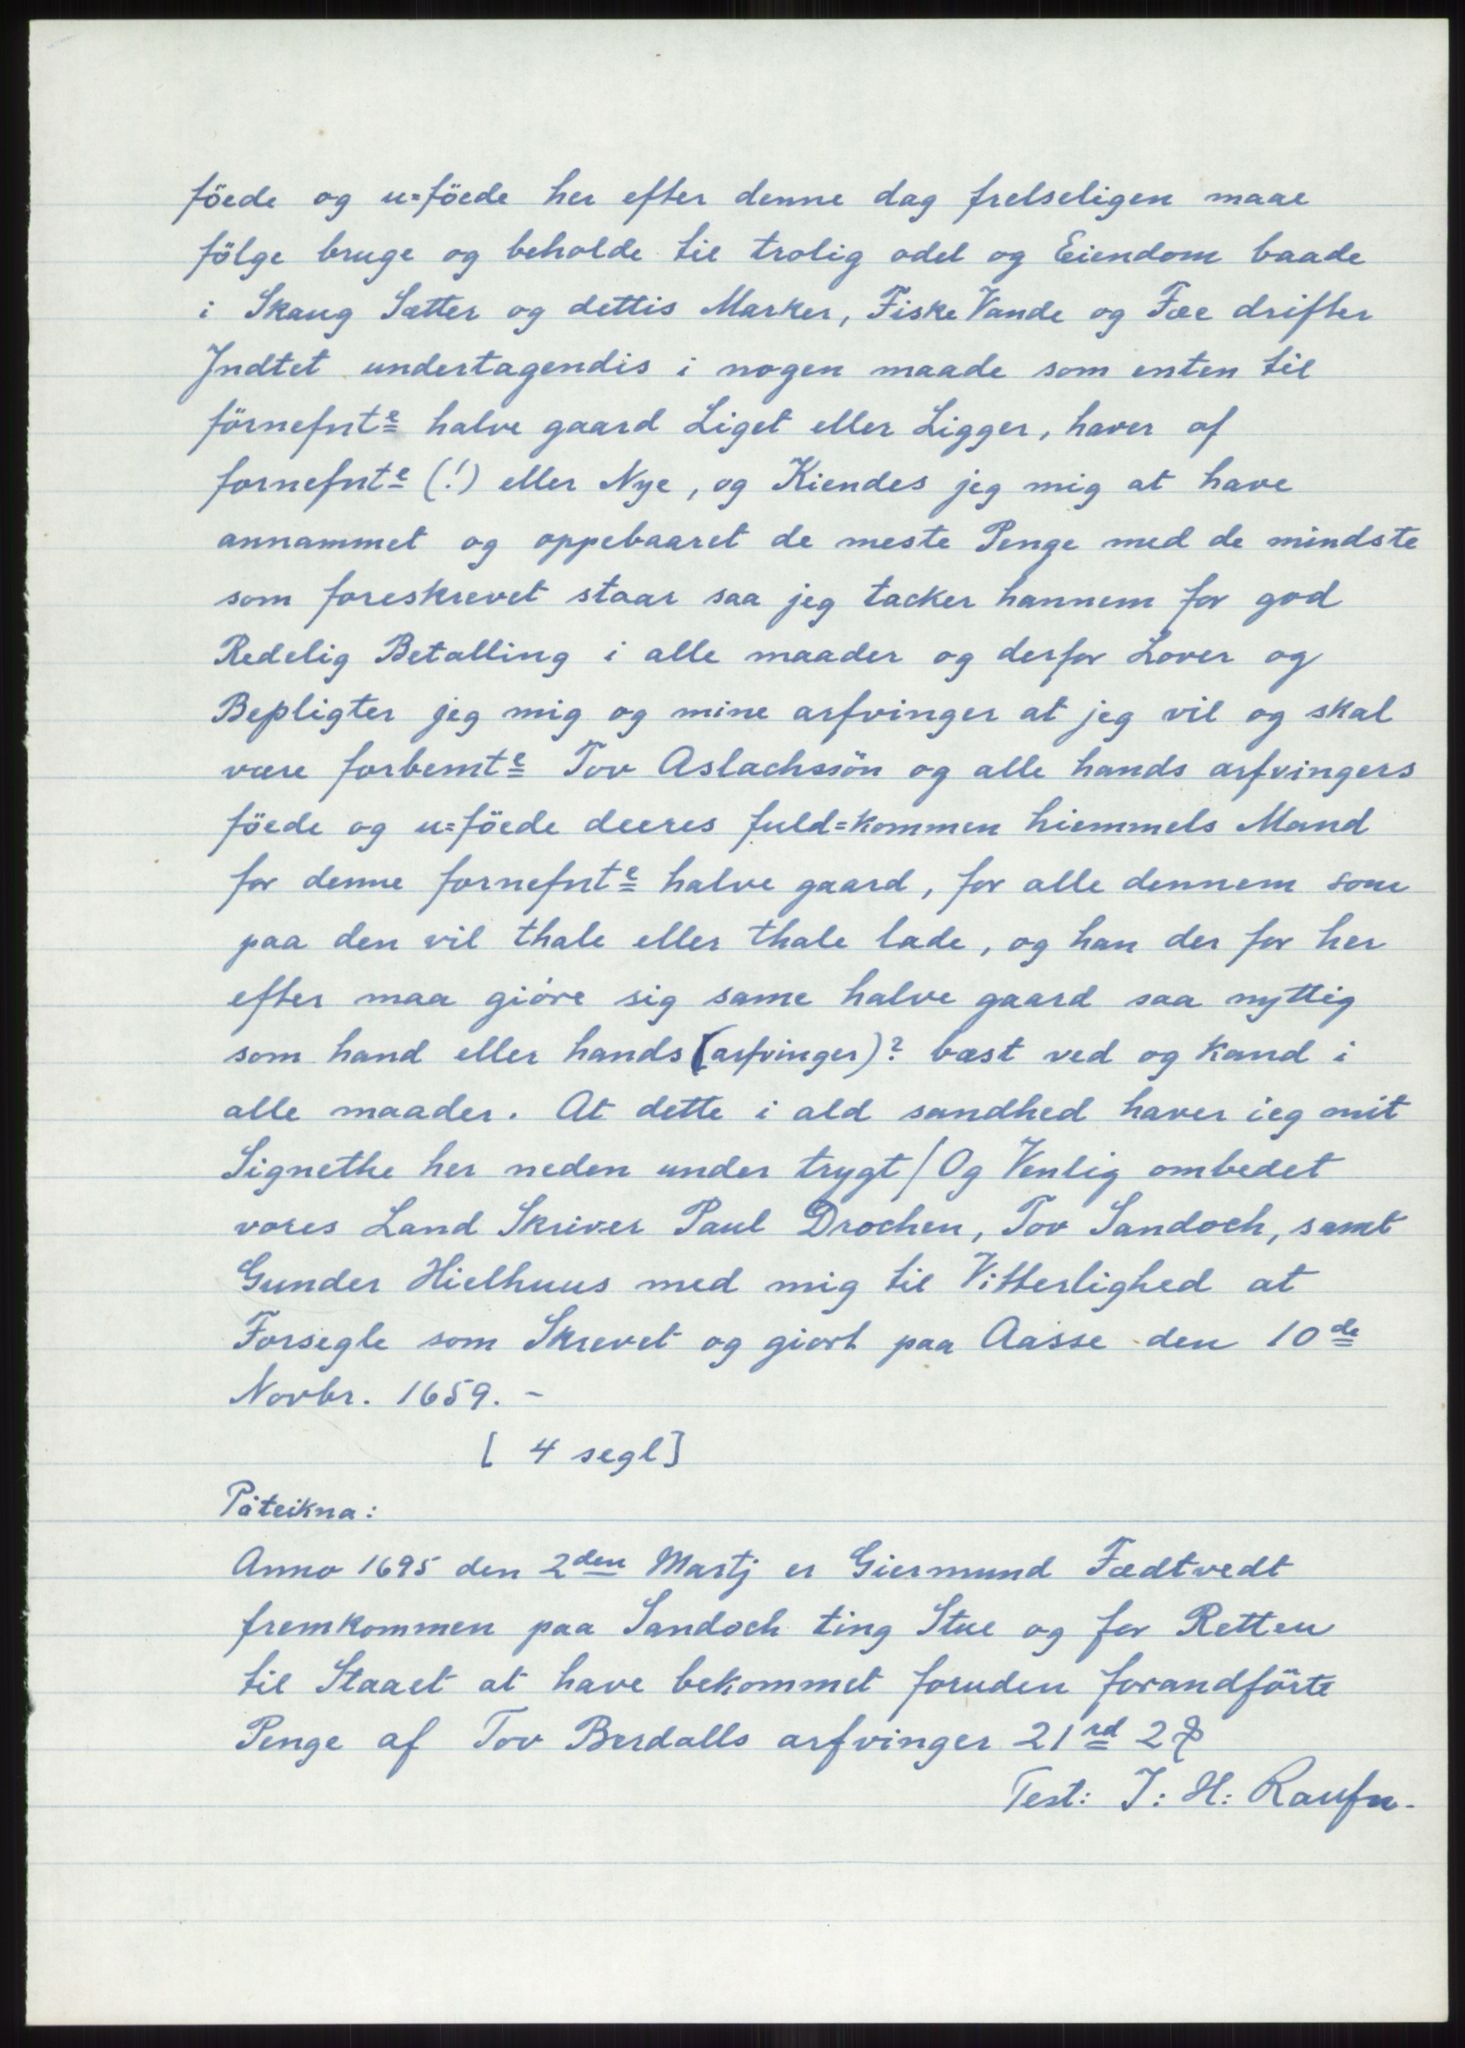 föede og u=föede her efter denne dag frelseligen maae
fölge bruge og beholde til trolig odel og Eiendom baade
i Skaug Sætter og dettis Marker, Fiske Vande og Fæe drifter
Indtet undertagendis i nogen maade som enten til
förnefnte halve gaard Liget eller Ligger, haver af
fornefnte (!) eller Nye, og Kiendes jeg mig at have
annammet og oppebaaret de meste Penge med de mindste
som foreskrevet staar saa jeg tacker hannem for god
Redelig Betalling i alle maader og derfor Lover og
Bepligter jeg mig og mine arfvinger at jeg vil og skal
være forbemte Tov Aslachssön og alle hands arfvingers
föede og u=föede deeres fuld=kommen hiemmels Mand
for denne fornefnte halve gaard, for alle dennem som
paa den vil thale eller thale lade, og han der for her
efter maa giöre sig same halve gaard saa nyttig
som hand eller hands (arfvinger)? bæst ved og kand i
alle maader. At dette i ald sandhed haver ieg mit
Signethe her neden under trygt / Og Venlig ombedet
vores Land Skriver Paul Drochen, Tov Sandoch, samt
Gunder Hielhuus med mig til Vitterlighed at
Forsegle som Skrevet og giort paa Aasse den 10de
Novbr. 1659. -
[ 4 segl]
Påteikna:
Anno 1695 den 2den Martj er Giermund Fædtvedt
fremkommen paa Sandoch ting Stue og for Retten
til Staaet at have bekommet foruden forandförte
Penge af Tov Berdalls arfvinger 21rd 2
Test: J: H: Raufn.